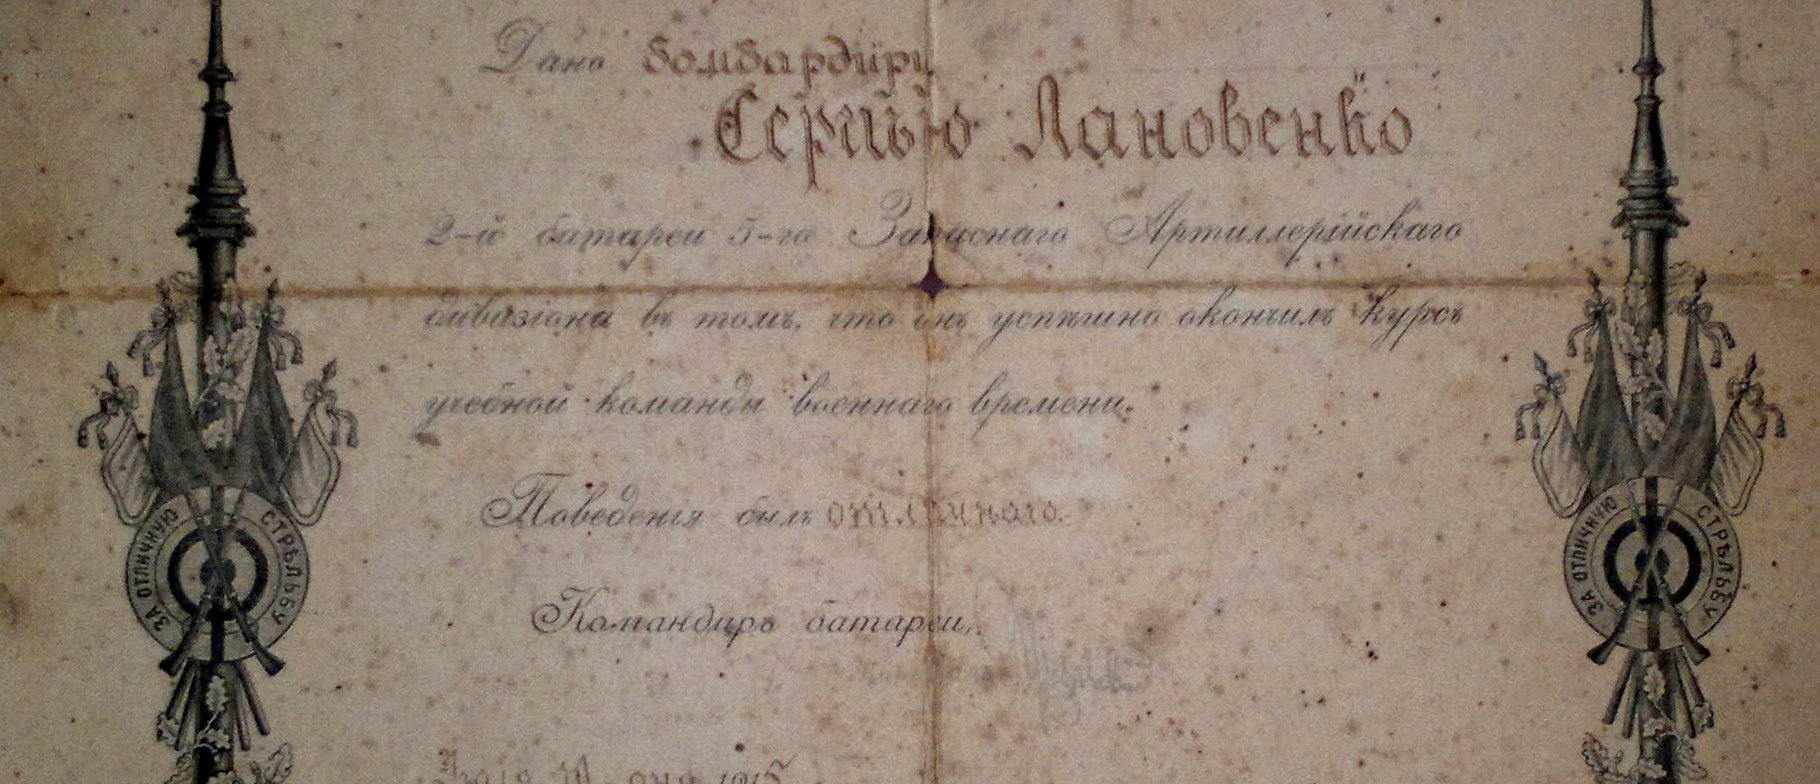 Дано бомбардиру
Сергѣю Лановенко
2-й батареи 5-го Запаснаго Артиллерійскаго
дивизіона въ томъ, что онъ успѣшно окончилъ курсъ
учебной команды военнаго времени.
Поведенія былъ отличнаго.
Командиръ батареи,
дня 1915
ЗА ОТЛИЧНУЮ СТРѢЛЬБУ
ЗА ОТЛИЧНУЮ СТРѢЛЬБУ